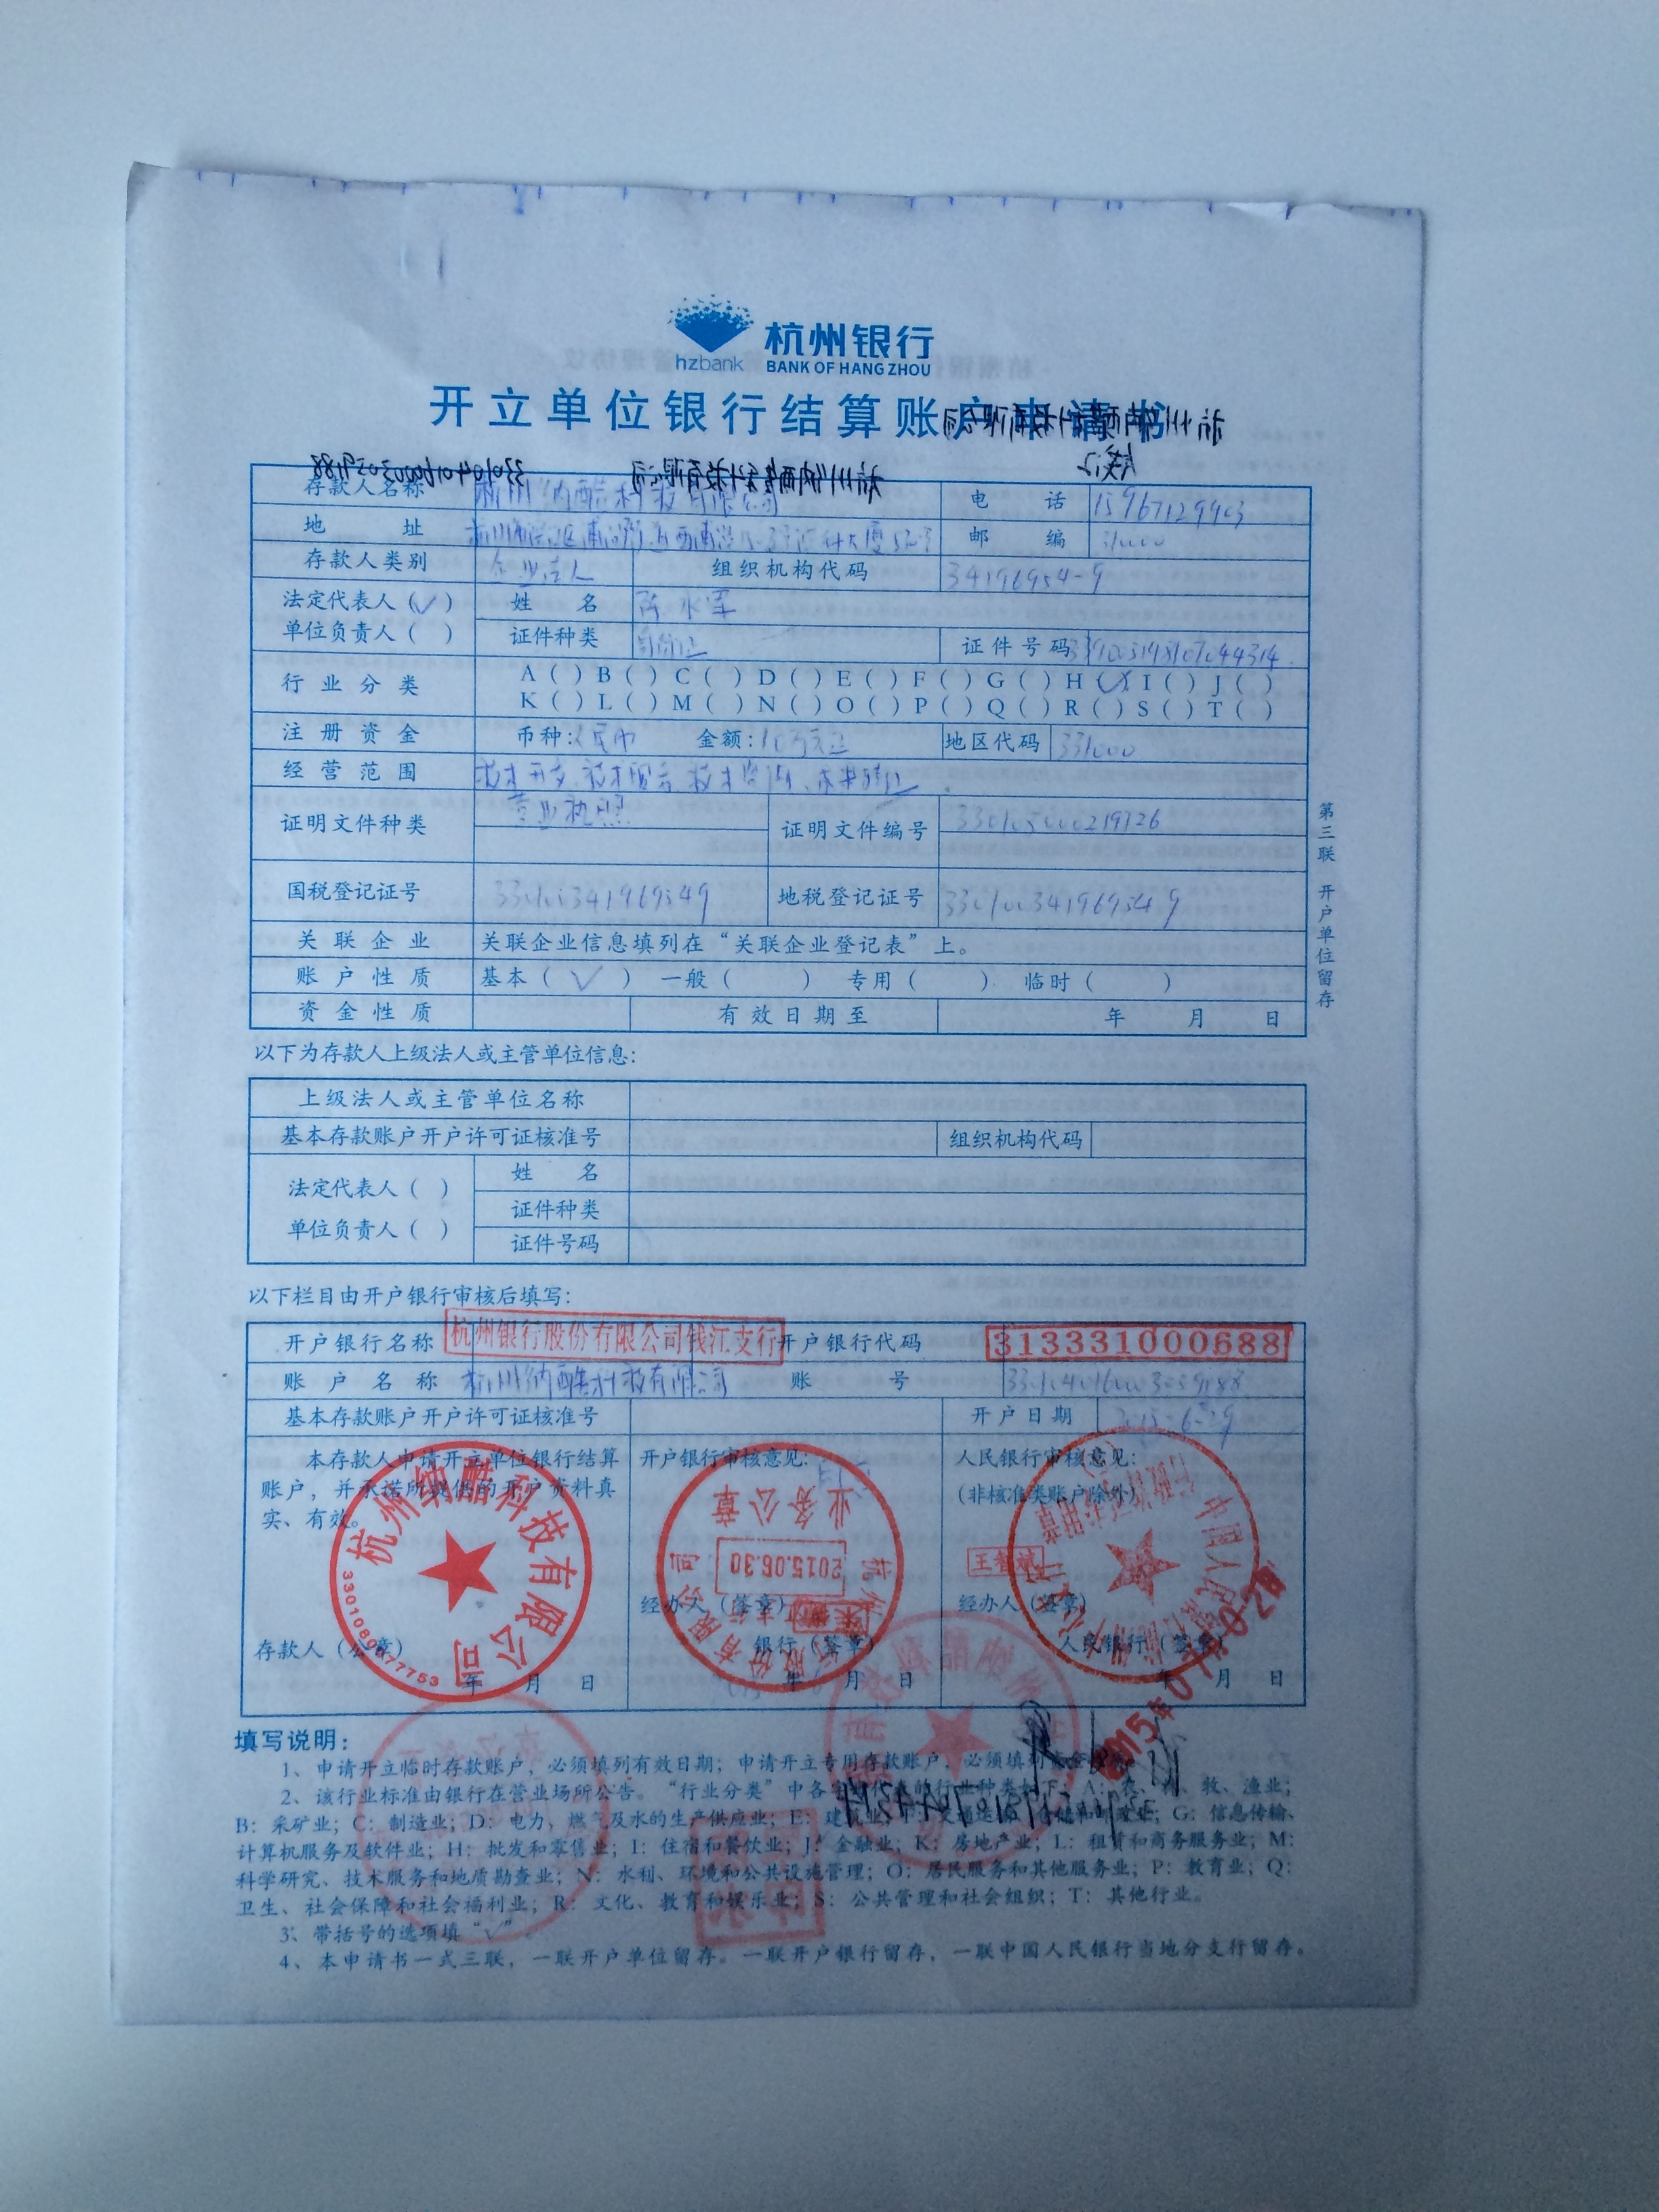 杭州银行
hzbank BANK OF HANGZHOU
开立单位银行结算账户申请书
存款人名称 杭州纳酷科技有限公司 电 话 15967129903
地 址 邮 编 310000
存款人类别 企业法人 组织机构代码 34196954-9
法定代表人（✓） 姓 名 陈水军
单位负责人（ ） 证件种类 身份证 证件号码
行业分类 A ( ) B ( ) C ( ) D ( ) E ( ) F ( ) G ( ) H (✓) I ( ) J ( )
K ( ) L ( ) M ( ) N ( ) O ( ) P ( ) Q ( ) R ( ) S ( ) T ( )
注册资金 币种:人民币 金额:10万元正 地区代码 331000
经营范围 技术开发、技术服务、技术咨询、
证明文件种类 营业执照 证明文件编号
国税登记证号 330100341969549 地税登记证号 330100341969549
关联企业 关联企业信息填列在“关联企业登记表”上。
账户性质 基本（✓） 一般（ ） 专用（ ） 临时（ ）
资金性质 有效日期至 年 月 日
第三联 开户单位留存
以下为存款人上级法人或主管单位信息:
上级法人或主管单位名称
基本存款账户开户许可证核准号 组织机构代码
法定代表人（ ） 姓 名
证件种类
单位负责人（ ） 证件号码
以下栏目由开户银行审核后填写:
开户银行名称 杭州银行股份有限公司钱江支行 开户银行代码 313331000688
账户名称 杭州纳酷科技有限公司 账 号 3301040160003059188
基本存款账户开户许可证核准号 开户日期 2015-6-29
本存款人申请开立单位银行结算账户，并承诺所提供的开户资料真实、有效。
杭州纳酷科技有限公司
3301080077753
存款人（公章）
年 月 日
开户银行审核意见:
业务公章
2015.06.30
经办人（签章）
银行（签章）
年 月 日
人民银行审核意见:
(非核准类账户除外)
王智斌
经办人（签章）
人民银行（签章）
2015年07月02日
年 月 日
填写说明:
1、申请开立临时存款账户，必须填列有效日期；申请开立专用存款账户，必须填列资金性质。
2、该行业标准由银行在营业场所公告。“行业分类”中各字母代表的行业种类如下：A：农、林、牧、渔业；
B：采矿业；C：制造业；D：电力、燃气及水的生产供应业；E：建筑业；F：交通运输、仓储和邮政业；G：信息传输、
计算机服务及软件业；H：批发和零售业；I：住宿和餐饮业；J：金融业；K：房地产业；L：租赁和商务服务业；M：
科学研究、技术服务和地质勘查业；N：水利、环境和公共设施管理；O：居民服务和其他服务业；P：教育业；Q：
卫生、社会保障和社会福利业；R：文化、教育和娱乐业；S：公共管理和社会组织；T：其他行业。
3、带括号的选项填“✓”
4、本申请书一式三联，一联开户单位留存。一联开户银行留存，一联中国人民银行当地分支行留存。